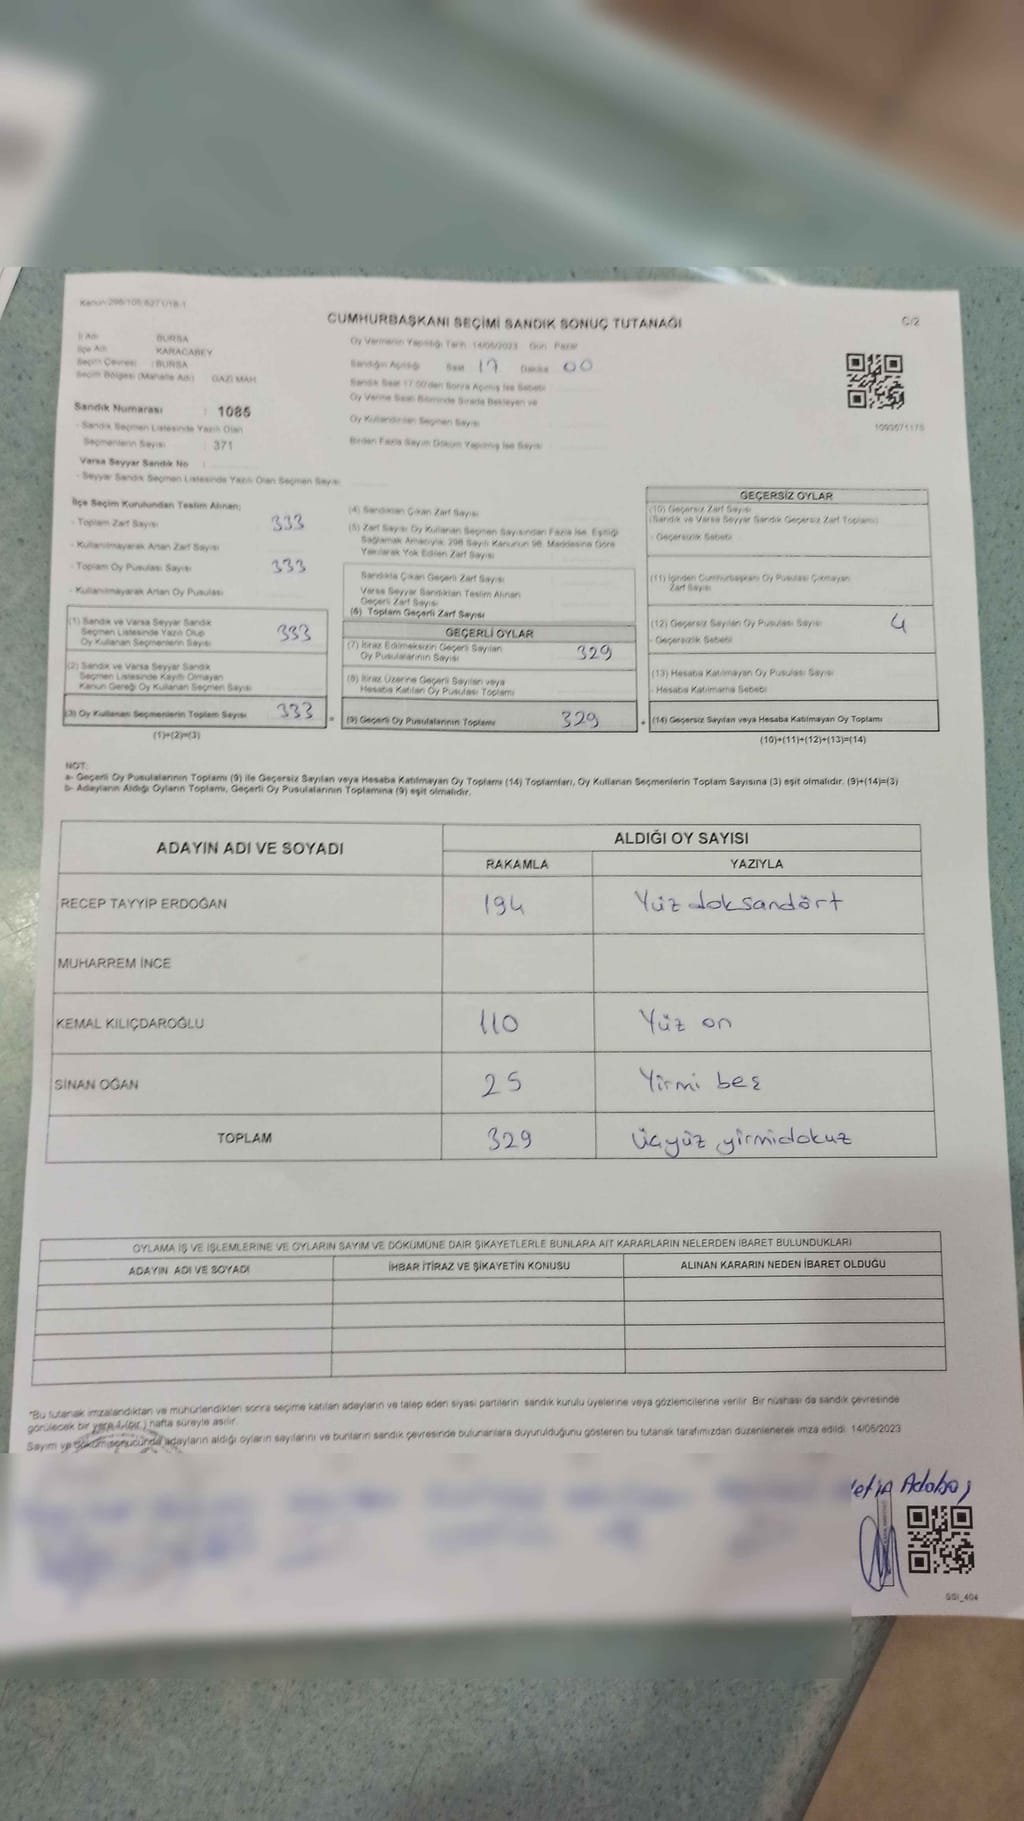 Kanun:298/105;6271/18-1
CUMHURBAŞKANI SEÇİMİ SANDIK SONUÇ TUTANAĞI
C/2
İl Adı : BURSA
İlçe Adı : KARACABEY
Seçim Çevresi : BURSA
Seçim Bölgesi (Mahalle Adı) : GAZİ MAH.
Sandık Numarası : 1085
- Sandık Seçmen Listesinde Yazılı Olan
Seçmenlerin Sayısı : 371
Varsa Seyyar Sandık No :
- Seyyar Sandık Seçmen Listesinde Yazılı Olan Seçmen Sayısı:
Oy Vermenin Yapıldığı Tarih: 14/05/2023 Gün: Pazar
Sandığın Açılışı Saat 17 Dakika 00
Sandık Saat 17:00'den Sonra Açılmış İse Sebebi
Oy Verme Saati Bitiminde Sırada Bekleyen ve
Oy Kullandırılan Seçmen Sayısı
Birden Fazla Sayım Döküm Yapılmış İse Sayısı
1093571175
İlçe Seçim Kurulundan Teslim Alınan;
- Toplam Zarf Sayısı 333
- Kullanılmayarak Artan Zarf Sayısı
- Toplam Oy Pusulası Sayısı 333
- Kullanılmayarak Artan Oy Pusulası
(1) Sandık ve Varsa Seyyar Sandık
Seçmen Listesinde Yazılı Olup
Oy Kullanan Seçmenlerin Sayısı 333
(2) Sandık ve Varsa Seyyar Sandık
Seçmen Listesinde Kayıtlı Olmayan
Kanun Gereği Oy Kullanan Seçmen Sayısı
(3) Oy Kullanan Seçmenlerin Toplam Sayısı 333
(1)+(2)=(3)
(4) Sandıktan Çıkan Zarf Sayısı
(5) Zarf Sayısı Oy Kullanan Seçmen Sayısından Fazla İse, Eşitliği
Sağlamak Amacıyla, 298 Sayılı Kanunun 98. Maddesine Göre
Yakılarak Yok Edilen Zarf Sayısı
Sandıkta Çıkan Geçerli Zarf Sayısı
Varsa Seyyar Sandıktan Teslim Alınan
Geçerli Zarf Sayısı
(6) Toplam Geçerli Zarf Sayısı
GEÇERLİ OYLAR
(7) İtiraz Edilmeksizin Geçerli Sayılan
Oy Pusulalarının Sayısı 329
(8) İtiraz Üzerine Geçerli Sayılan veya
Hesaba Katılan Oy Pusulası Toplamı
= (9) Geçerli Oy Pusulalarının Toplamı 329 +
GEÇERSİZ OYLAR
(10) Geçersiz Zarf Sayısı
(Sandık ve Varsa Seyyar Sandık Geçersiz Zarf Toplamı)
- Geçersizlik Sebebi
(11) İçinden Cumhurbaşkanı Oy Pusulası Çıkmayan
Zarf Sayısı
(12) Geçersiz Sayılan Oy Pusulası Sayısı 4
- Geçersizlik Sebebi
(13) Hesaba Katılmayan Oy Pusulası Sayısı
- Hesaba Katılmama Sebebi
(14) Geçersiz Sayılan veya Hesaba Katılmayan Oy Toplamı
(10)+(11)+(12)+(13)=(14)
NOT:
a- Geçerli Oy Pusulalarının Toplamı (9) ile Geçersiz Sayılan veya Hesaba Katılmayan Oy Toplamı (14) Toplamları, Oy Kullanan Seçmenlerin Toplam Sayısına (3) eşit olmalıdır. (9)+(14)=(3)
b- Adayların Aldığı Oyların Toplamı, Geçerli Oy Pusulalarının Toplamına (9) eşit olmalıdır.
ADAYIN ADI VE SOYADI
ALDIĞI OY SAYISI
RAKAMLA YAZIYLA
RECEP TAYYİP ERDOĞAN 194 Yüz doksandört
MUHARREM İNCE
KEMAL KILIÇDAROĞLU 110 Yüz on
SİNAN OĞAN 25 Yirmi beş
TOPLAM 329 üçyüz yirmidokuz
OYLAMA İŞ VE İŞLEMLERİNE VE OYLARIN SAYIM VE DÖKÜMÜNE DAİR ŞİKAYETLERLE BUNLARA AİT KARARLARIN NELERDEN İBARET BULUNDUKLARI
ADAYIN ADI VE SOYADI İHBAR İTİRAZ VE ŞİKAYETİN KONUSU ALINAN KARARIN NEDEN İBARET OLDUĞU
*Bu tutanak imzalandıktan ve mühürlendikten sonra seçime katılan adayların ve talep eden siyasi partilerin sandık kurulu üyelerine veya gözlemcilerine verilir. Bir nüshası da sandık çevresinde
görülecek bir yere 1 (bir) hafta süreyle asılır.
Sayım ve döküm sonucunda adayların aldığı oyların sayılarını ve bunların sandık çevresinde bulunanlara duyurulduğunu gösteren bu tutanak tarafımızdan düzenlenerek imza edildi. 14/05/2023
SSI_404